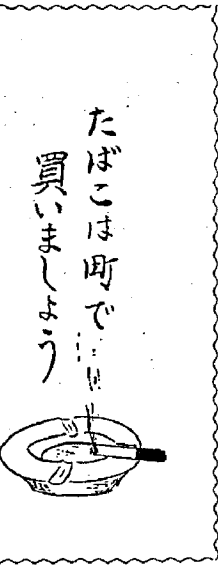 たばこは町で
買いましょう